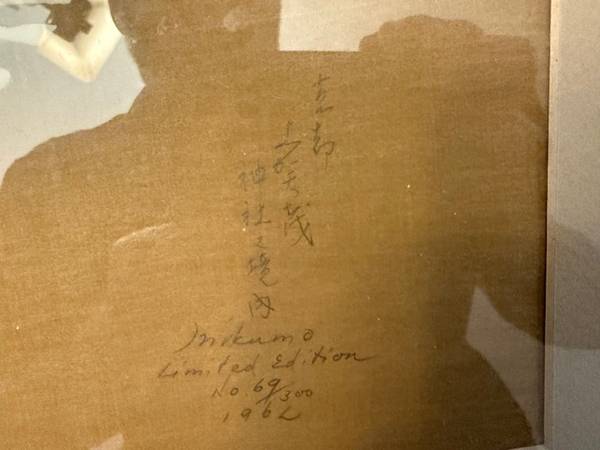 京都
上賀茂
神社之境内
Mikumo
Limited Edition
No. 69/300
1962